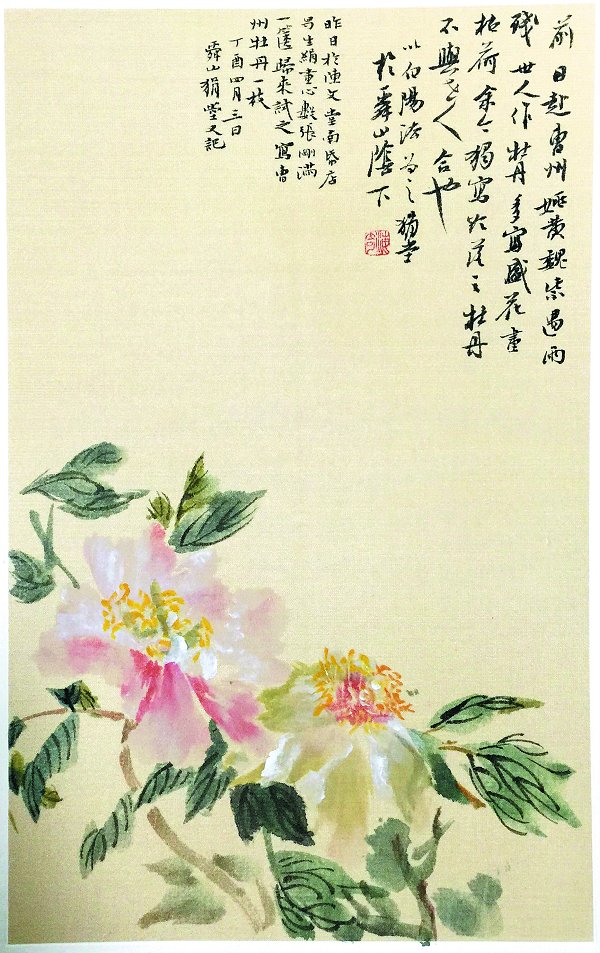 前日赴曹州姚黄魏紫遇雨
残世人作牡丹多寫盛花畫
枯荷余今獨寫落之牡丹
不與人合也
以白陽法為之狷堂
於舜山隂下
昨日於陳文堂南紙店
生絹畫心數張剛滿
一匧歸來試之寫曹
州牡丹一枝
丁酉四月三日
舜山狷堂又記